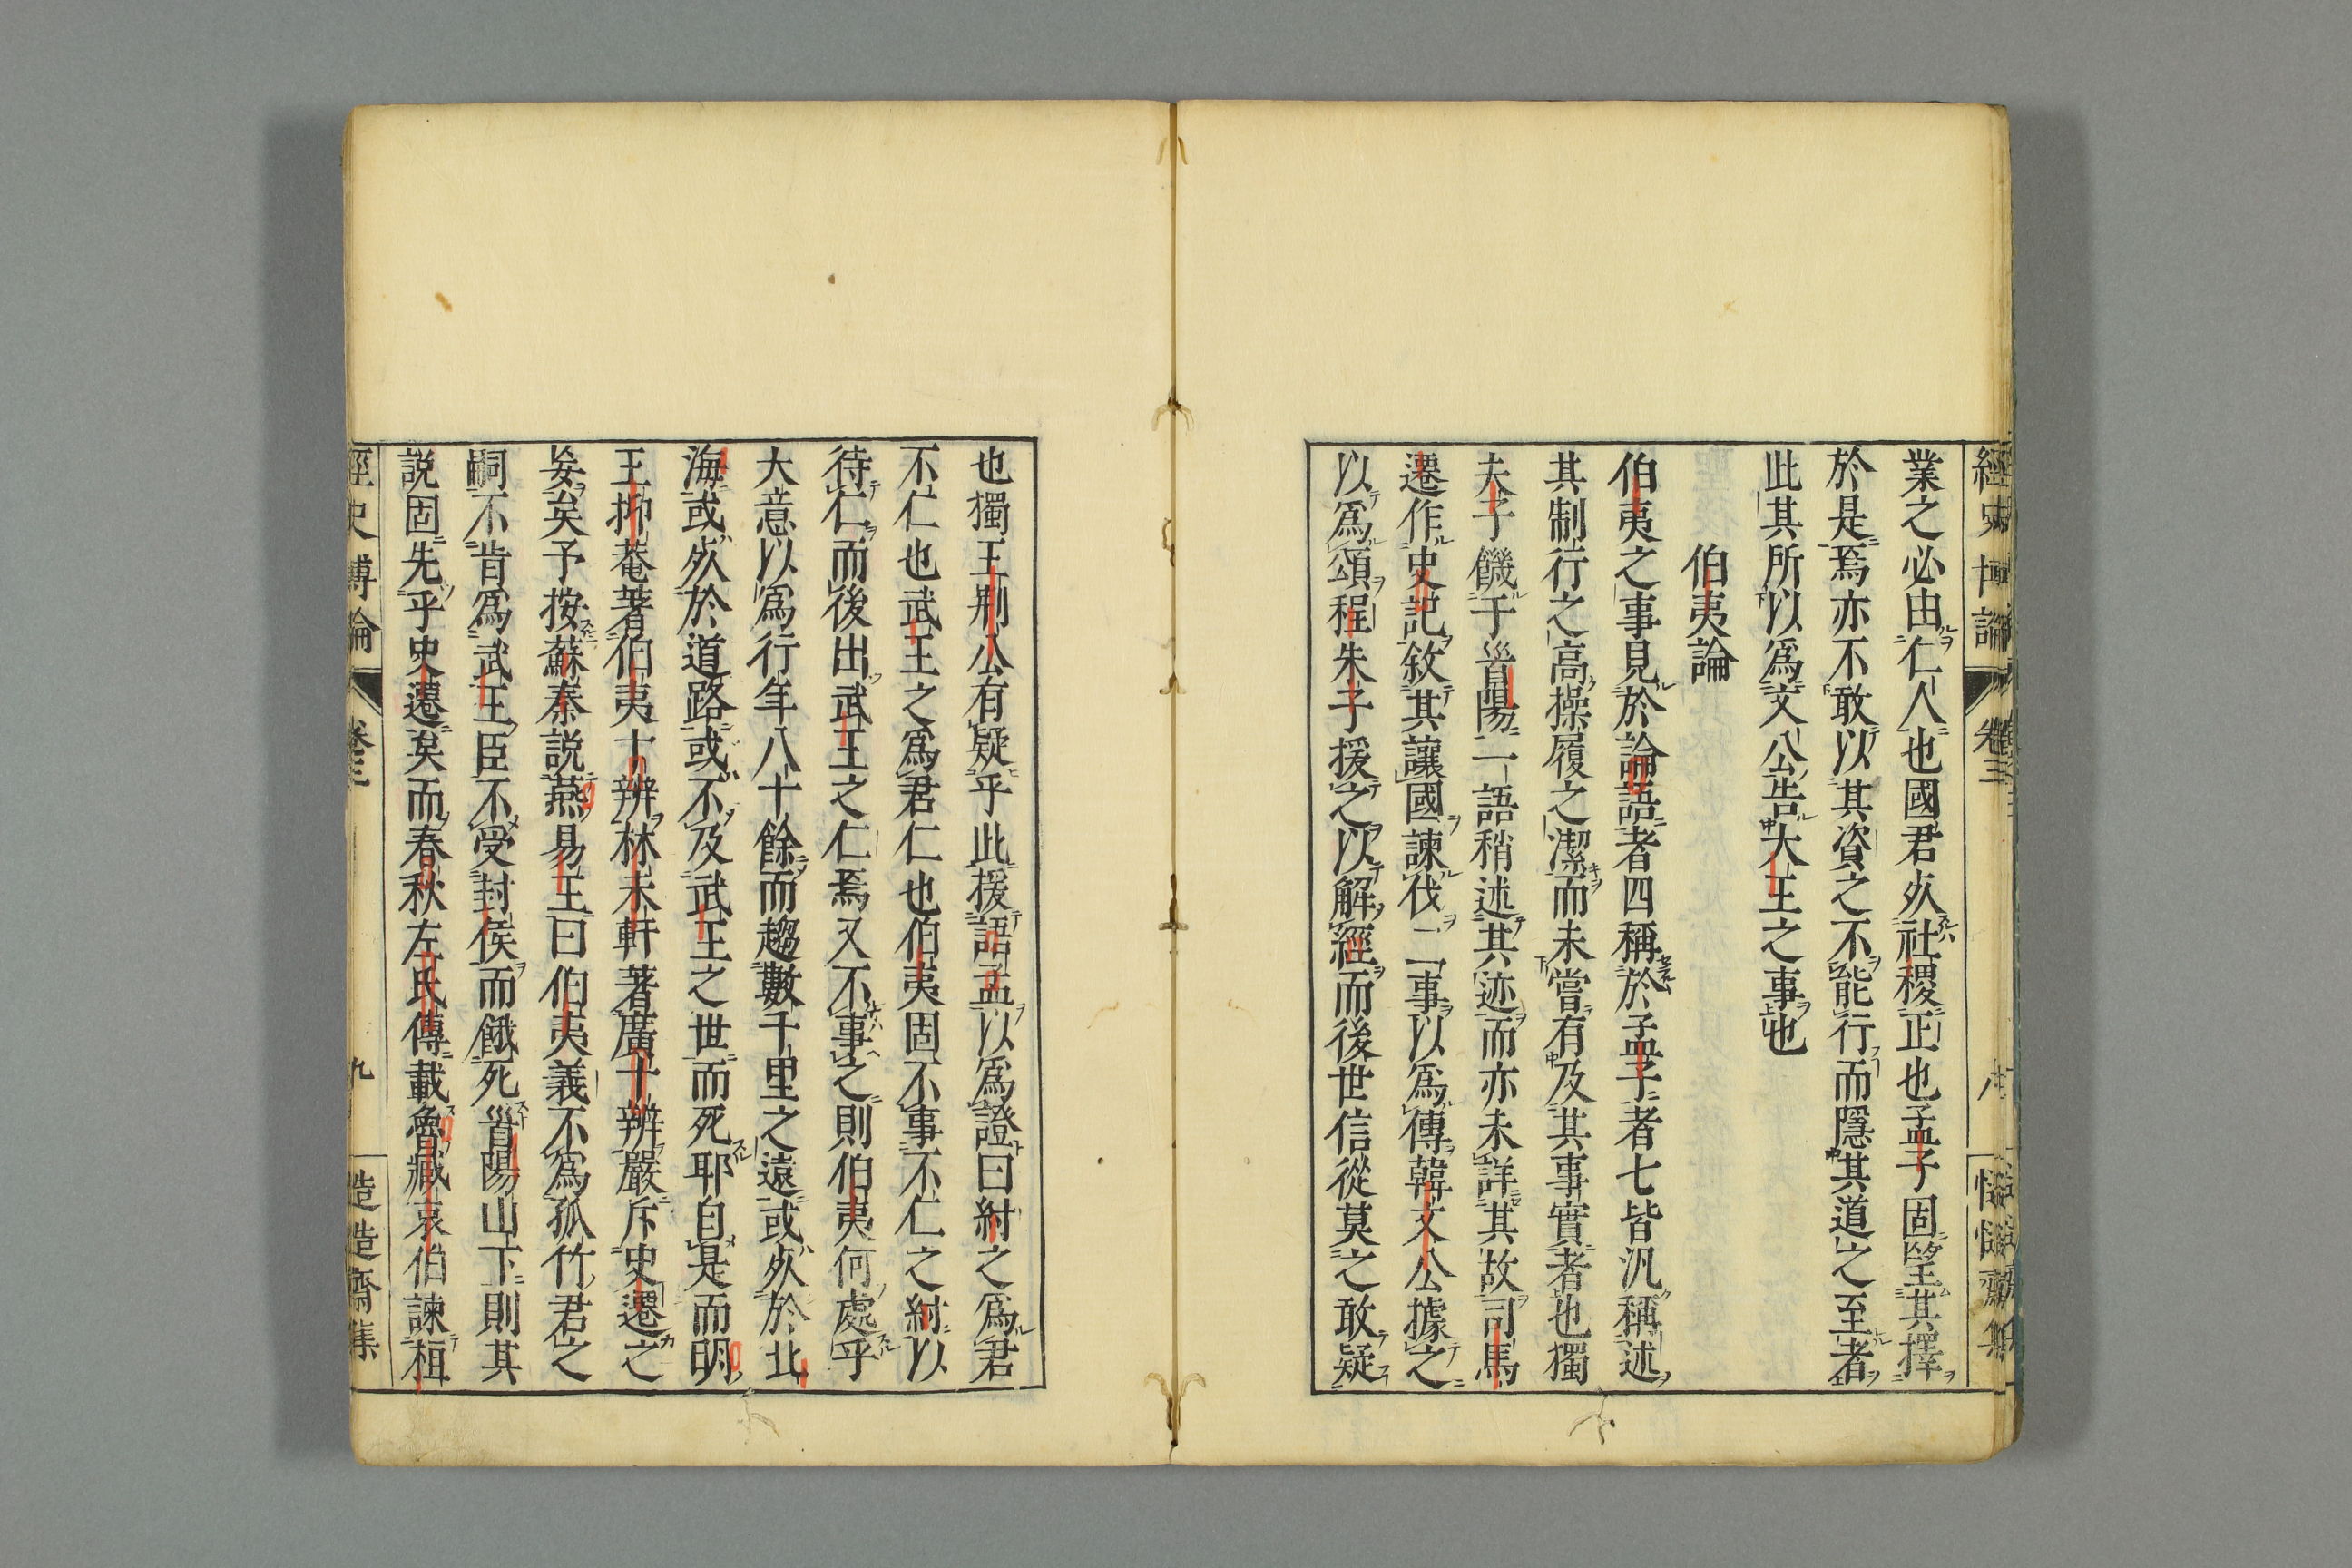 經史博論 卷三
業之必由仁人也國君死社稷正也孟子固望其擇
於是焉亦不敢以其資之不能行而隱其道之至者
此其所以爲文公告大王之事也
伯夷論
伯夷之事見於論語者四稱於孟子者七皆汎稱述
其制行之高操履之潔而未嘗有及其事實者也獨
夫子饑于首陽一語稍述其迹而亦未詳其故司馬
遷作史記敘其讓國諫伐二事以爲傳韓文公據之
以爲頌程朱子援之以解經而後世信從莫之敢疑
也獨王荆公有疑乎此援語孟以爲證曰紂之爲君
不仁也武王之爲君仁也伯夷固不事不仁之紂以
待仁而後出武王之仁焉又不事之則伯夷何處乎
大意以爲行年八十餘而趨數千里之遠或死於北
海或死於道路或不及武王之世而死耶自是而明
王抑菴著伯夷十辨林未軒著廣十辨嚴斥史遷之
妄矣予按蘇秦説燕易王曰伯夷義不爲孤竹君之
嗣不肯爲武王臣不受封侯而餓死首陽山下則其
説固先乎史遷矣而春秋左氏傳載魯臧哀伯諫桓
經史博論 卷三 九 慥慥齋集